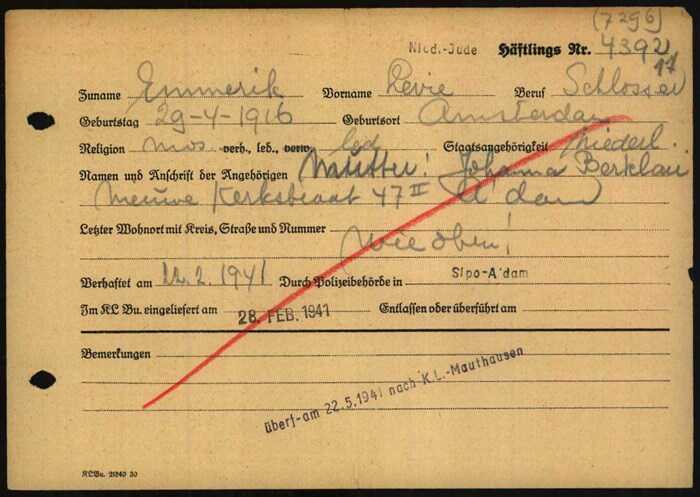 (7296)
Nied.-Jude Häftlings Nr. 4392
17
Zuname Emmerik Vorname Levie Beruf Schlosser
Geburtstag 29-4-1916 Geburtsort Amsterdam
Religion mos. verh., led., verw. led Staatsangehörigkeit Niederl.
Namen und Anschrift der Angehörigen Mutter! Johanna Berklau
Nieuwe Kerkstraat 47 II A'dam
Letzter Wohnort mit Kreis, Straße und Nummer wie oben!
Verhaftet am 22.2.1941 Durch Polizeibehörde in Sipo-A'dam
Im KL Bu. eingeliefert am 28. FEB. 1941 Entlassen oder überführt am
Bemerkungen
überf-am 22.5.1941 nach K.L.-Mauthausen
KLBu. 2640 30